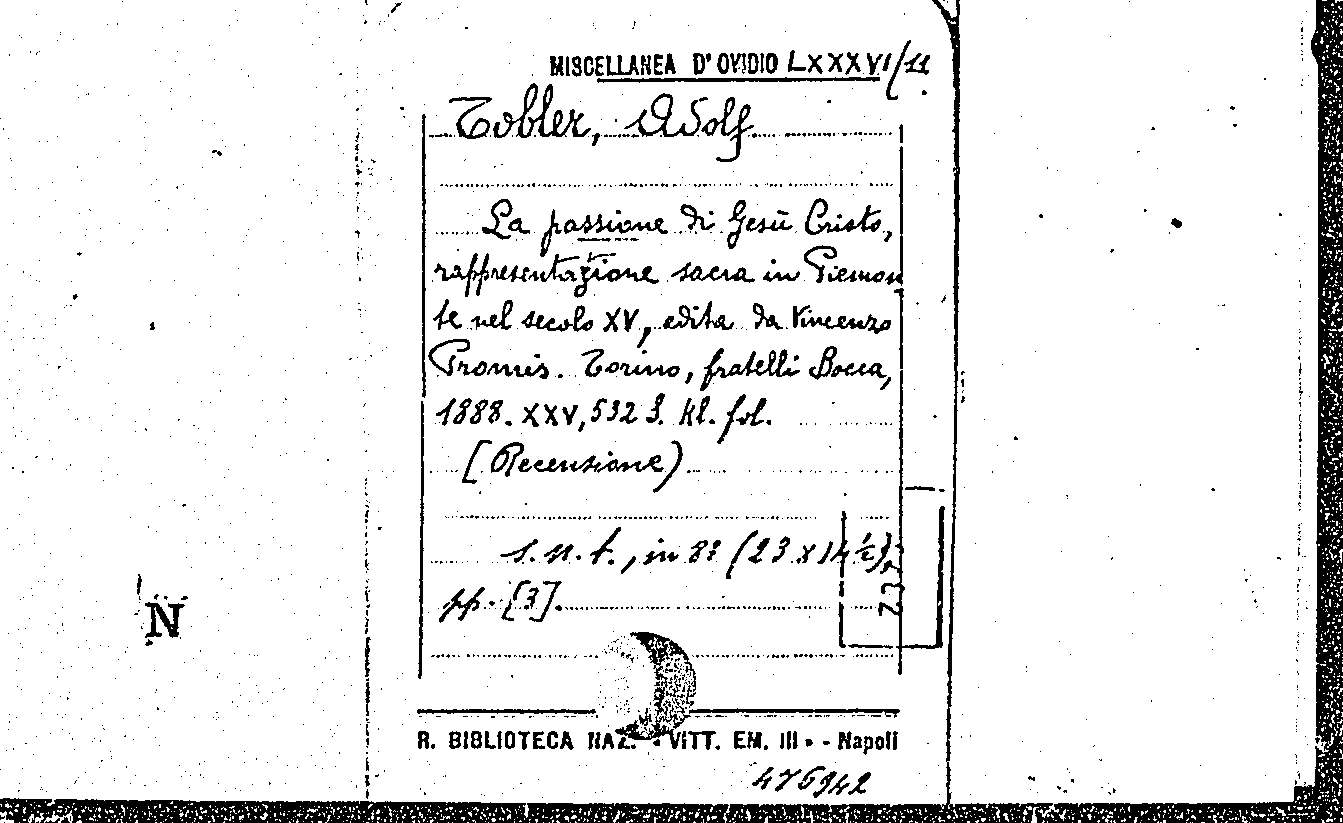 MISCELLANEA D'OVIDIO LXXXVI/11.
Tobler, Adolf
La passione di Gesù Cristo,
rappresentazione sacra in Piemon
te nel secolo XV, edita da Vincenzo
Promis. Torino, fratelli Bocca,
1888. XXV, 532 S. kl. fol.
[Recensione)
s. n. t., in 8º (23 x 14 ½),
pp. [3].
R. BIBLIOTECA NAZ. « VITT. EM. III » - Napoli
475942
N